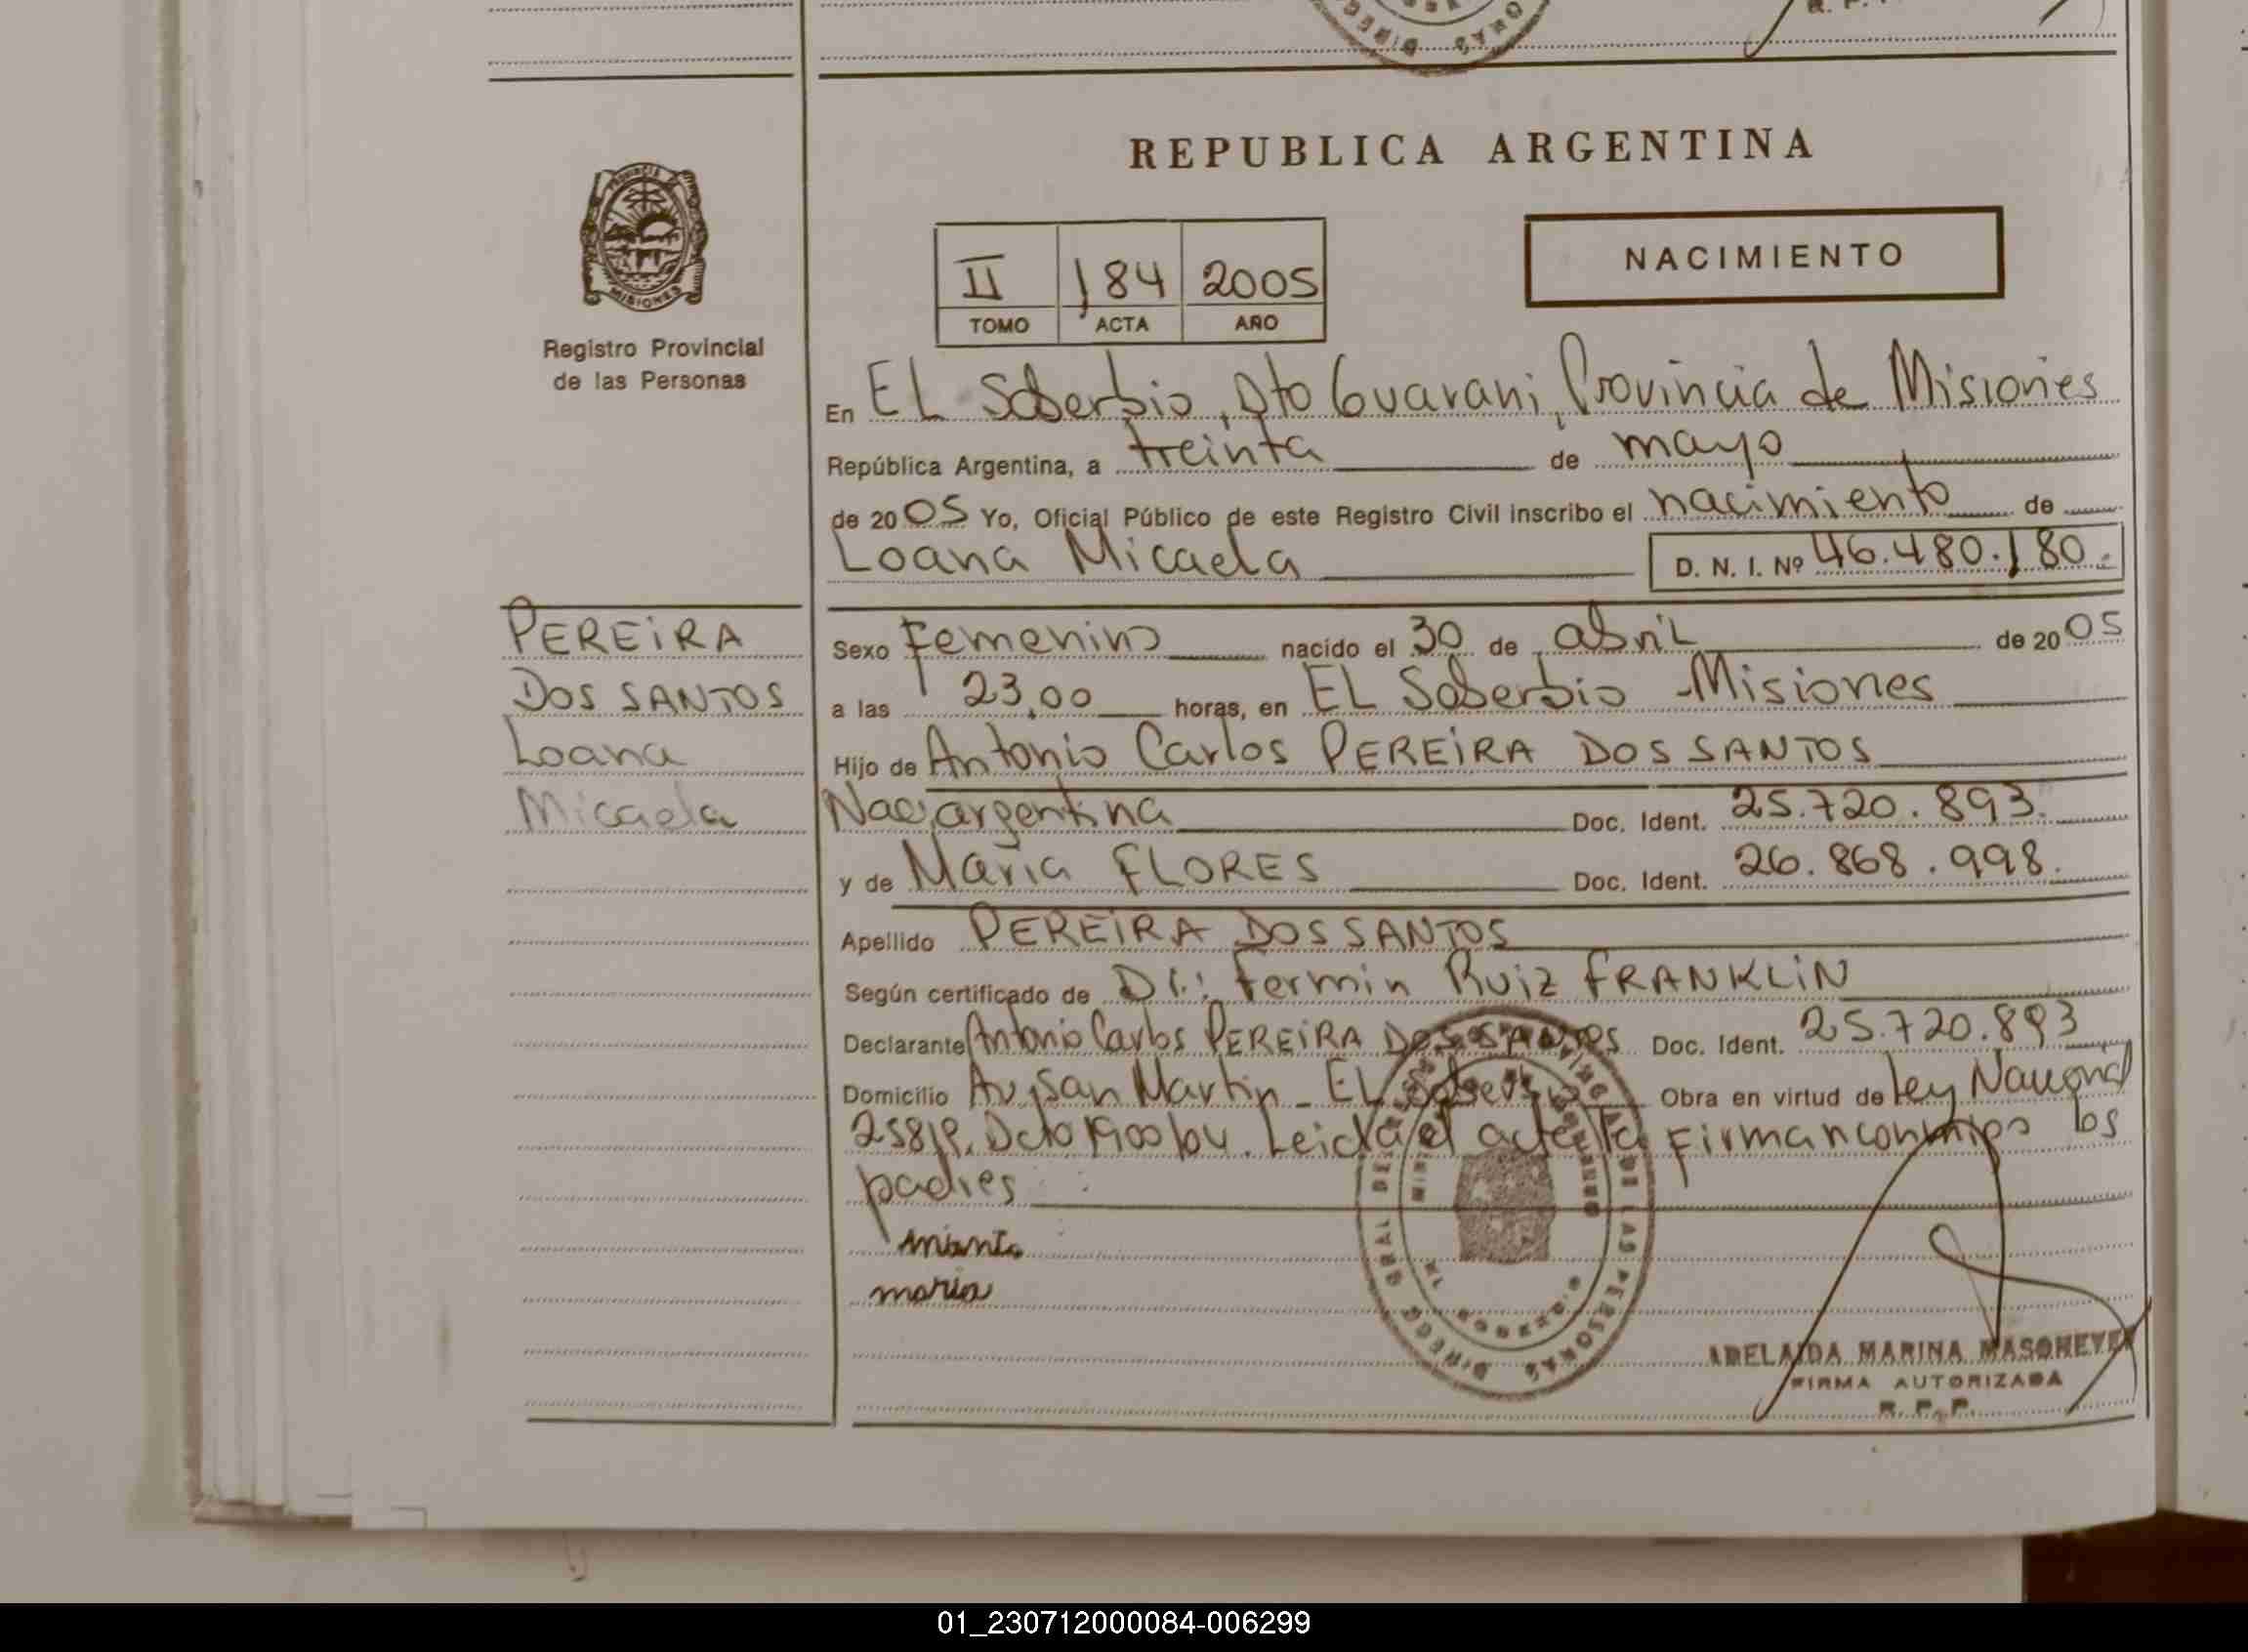 REPUBLICA ARGENTINA
NACIMIENTO
II 184 2005
TOMO ACTA AÑO
PROVINCIA DE
MISIONES
Registro Provincial
de las Personas
En EL Soberbio, Dto Guarani, Provincia de Misiones
República Argentina, a treinta de mayo
de 2005 Yo, Oficial Público de este Registro Civil inscribo el nacimiento de
Loana Micaela D. N. I. Nº 46.480.180.-
PEREIRA
DOS SANTOS
Loana
Micaela
Sexo Femenino nacido el 30 de abril de 2005
a las 23,00 horas, en EL Soberbio - Misiones
Hijo de Antonio Carlos PEREIRA DOS SANTOS
Nac. argentina Doc. Ident. 25.720.893.
y de Maria FLORES Doc. Ident. 26.868.998.
Apellido PEREIRA DOS SANTOS
Según certificado de Dr.: Fermin Ruiz FRANKLIN
Declarante Antonio Carlos PEREIRA DOS SANTOS Doc. Ident. 25.720.893
Domicilio Av. San Martin - EL Soberbio Obra en virtud de Ley Nacional
25819. Dcto 1900/04. Leida el acta la firman conmigo los
padres
maria
ADELAIDA MARINA MASOHEYER
FIRMA AUTORIZADA
R. P. P.
01_230712000084-006299